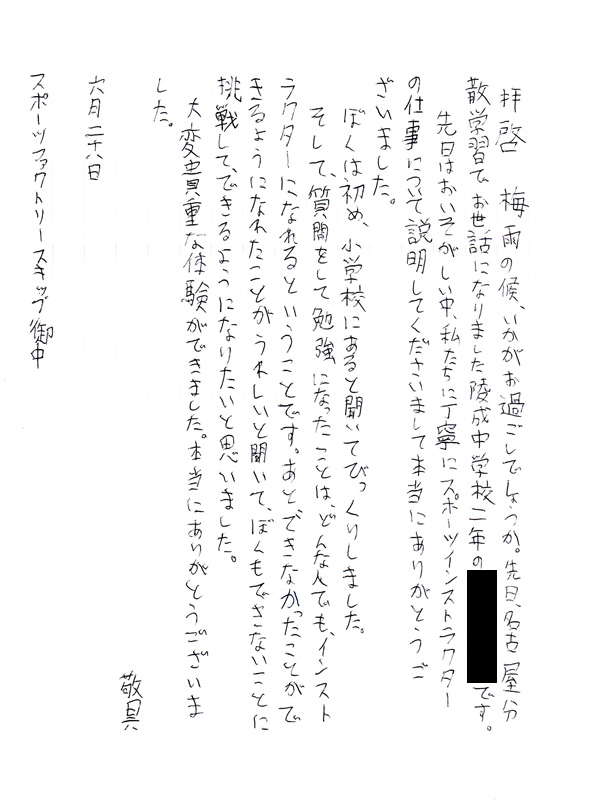 拝啓　梅雨の候、いかがお過ごしでしょうか。先日、名古屋分
散学習でお世話になりました陵成中学校二年の　です。
先日はおいそがしい中、私たちに丁寧にスポーツインストラクター
の仕事について説明してくださいまして本当にありがとうご
ざいました。
ぼくは初め、小学校にあると聞いてびっくりしました。
そして、質問をして勉強になったことは、どんな人でも、インスト
ラクターになれるということです。あとできなかったことがで
きるようになれたことがうれしいと聞いて、ぼくもできないことに
挑戦して、できるようになりたいと思いました。
大変貴重な体験ができました。本当にありがとうございま
した。
敬具
六月二十八日
スポーツファクトリースキップ御中